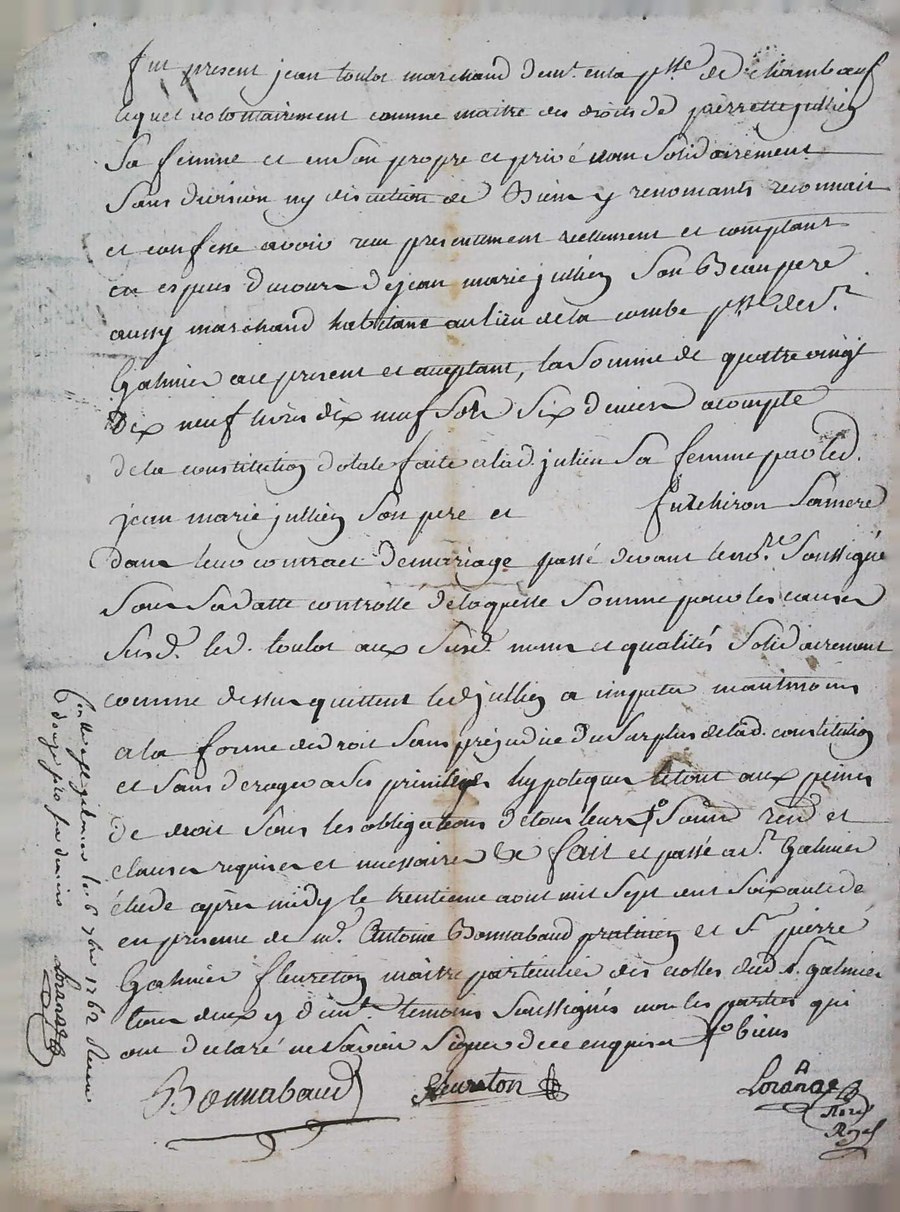 fut present jean toulot marchand demt. enla psse de chambeuf
lequel volontairement comme maitre des droits de pierrette jullien
Sa femme et en son propre et privé nom Solidairement
Sans division ny discution de Biens y renonçants reconnait
et confesse avoir reçu presentement reellement et comptant
en espces ducours de jean marie jullien Son Beau pere
aussy marchand habitant au lieu dela combe psse de st.
Galmier ace present et acceptant, la Somme de quatre vingt
dix neuf livres dix neuf Sols Six deniers acompte
dela constitution dotale faite alad. julien Sa femme par led.
jean marie jullien Son pere et futchiron Samere
dans leur contract demariage passé devant le nore. Soussigné
Sous Sadatte controllé delaquelle Somme pour les causes
Susd. led. toulot aux Susd. noms et qualités Solidairement
comme dessus quittent led jullien a imputer neantmoins
ala forme dudroit Sans préjudice du Surplus delad. constitution
et Sans deroger a Ses privileges hypoteques letout aux peines
de droit Sous les obligations de tous leurs Soum renon et
clauses requises et necessaires fait et passé a st. Galmier
étude après midy le trentieme aout mil Sept cent Soixante de
en presence de me. Antoine Bonnabaud praticien et Sr pierre
Galmier fleureton maitre particulier des ecolles dud st. galmier
tous deux y demt. temoins Soussignés non les parties qui
ont declaré ne Savoir Signer de ce enquises biens
Bonnabaud fleureton Lorange
Nore
Royal
galmier le 6 7bre 1762 Reçu
douze sols six deniers Lorange